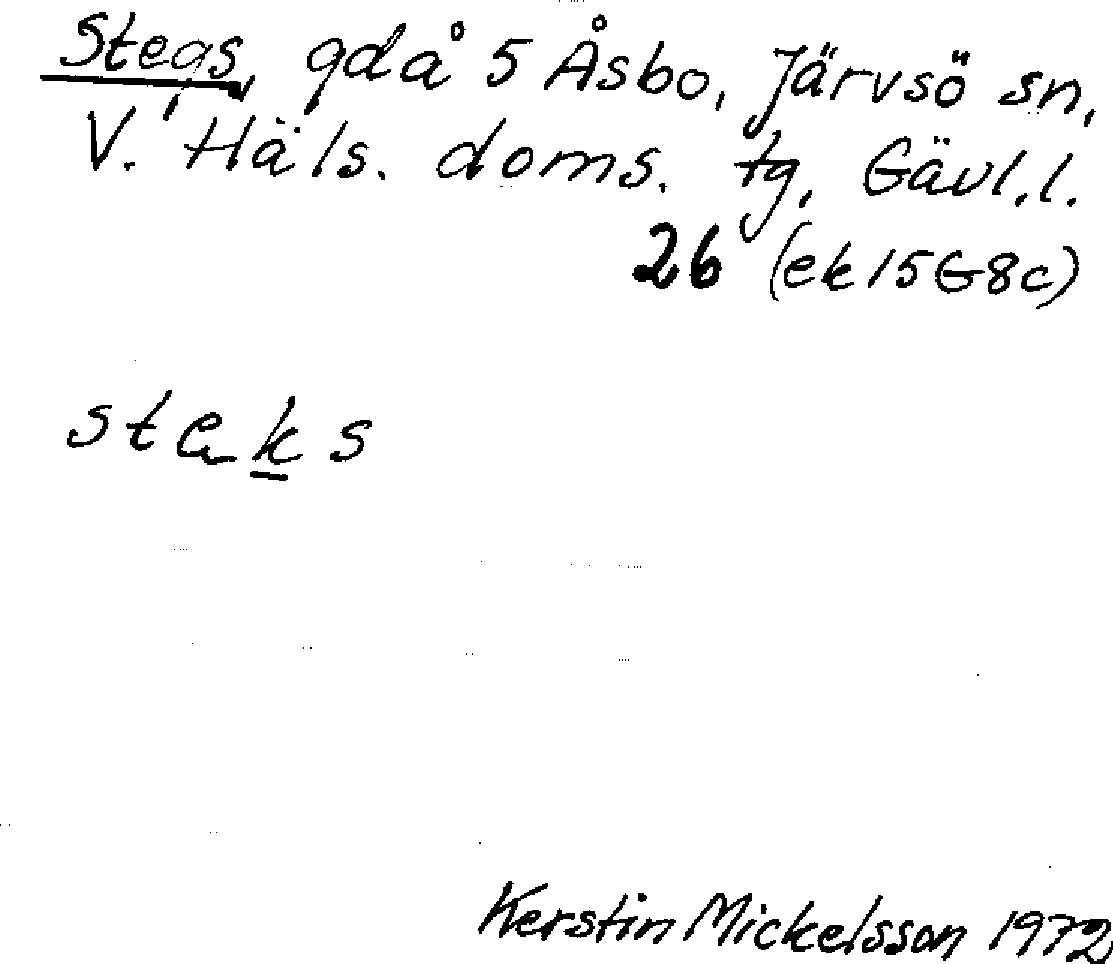 Stegs, gd å 5 Åsbo, Järvsö sn,
V. Häls. doms. tg, Gävl.l.
26 (ek 15G8c)
steks
Kerstin Mickelsson 1972